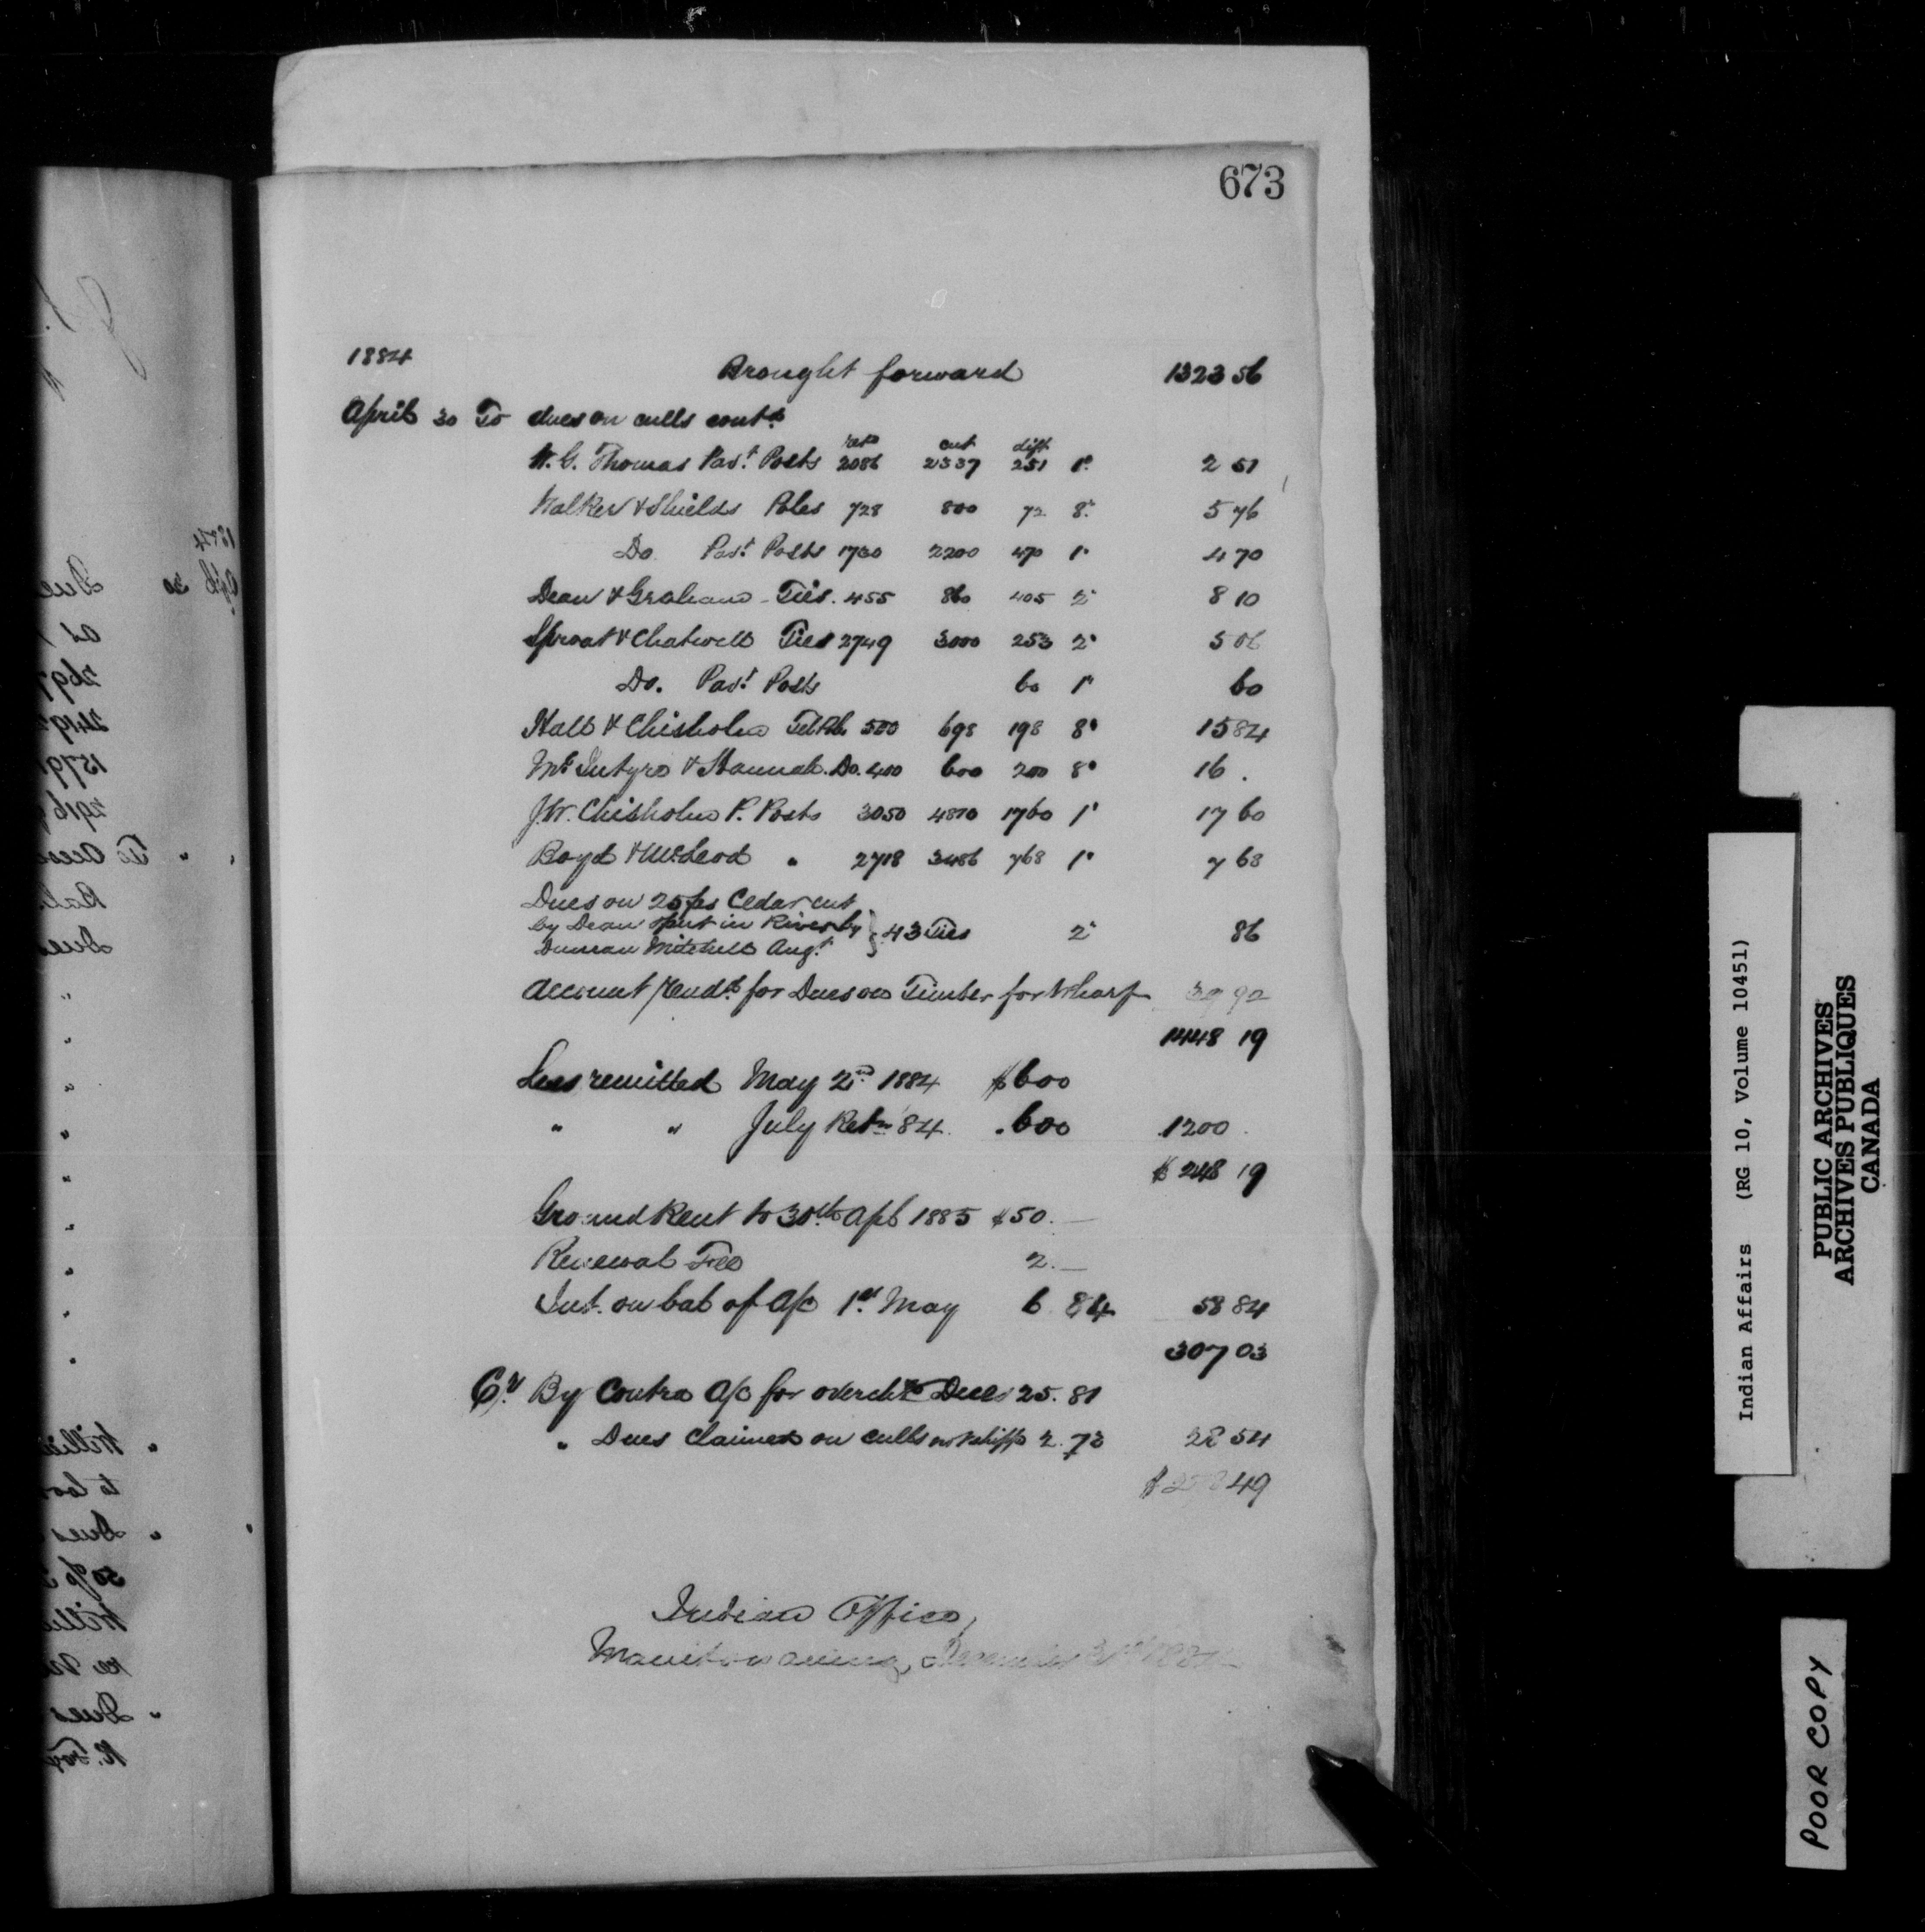 673
1884 Brought forward 1323 56
April 30 To dues on culls contd
retd cut diffe
W. G. Thomas Pavt Posts 2086 2337 251 1c 2 51
Walker & Shields Poles 728 800 72 8c 5 76
Do. Pavt Posts 1730 2200 470 1c 4 70
Dean & Graham - Ties. 455 860 405 2c 8 10
Sproat & Chatwell Ties 2749 3000 253 2c 5 06
Do. Pavt Posts 60 1c 60
Hall & Chisholm Tel Poles 500 698 198 8c 15 84
McIntyre & Hannah. Do. 400 600 200 8c 16 .
J. W. Chisholm P. Posts 3050 4810 1760 1c 17 60
Boyd & McLeod " 2718 3486 768 1c 7 68
Dues on 25 pcs Cedar cut
by Dean & put in River by } 43 Ties 2c 86
Duncan Mitchell Augt
Account rendd for Dues on Timber for Wharf 39 92
1448 19
Less remitted May 2nd 1884 $600
" " July Retn '84. .600 1200 .
$ 248 19
Ground Rent to 30th Apl 1885 $50. —
Renewal Fee 2. —
Int. on bal of a/c 1st May 6 84 58 84
307 03
Cr By Contra a/c for overchg Dues 25. 81
" Dues claimed on culls not shipd 2. 73 28 54
$ 278 49
Indian Office,
Manitowaning, December 31st 1884
1884
Apl 30
Dues
2697
2419
1579
2916
" " To
Bal.
Dues
Indian Affairs (RG 10, Volume 10451)
PUBLIC ARCHIVES
ARCHIVES PUBLIQUES
CANADA
POOR COPY